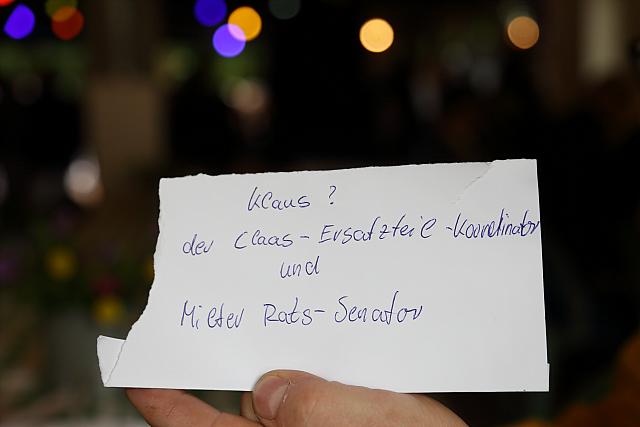 Klaus ?
der Claas-Ersatzteil-Koordinator
und
Mieter Rats-Senator